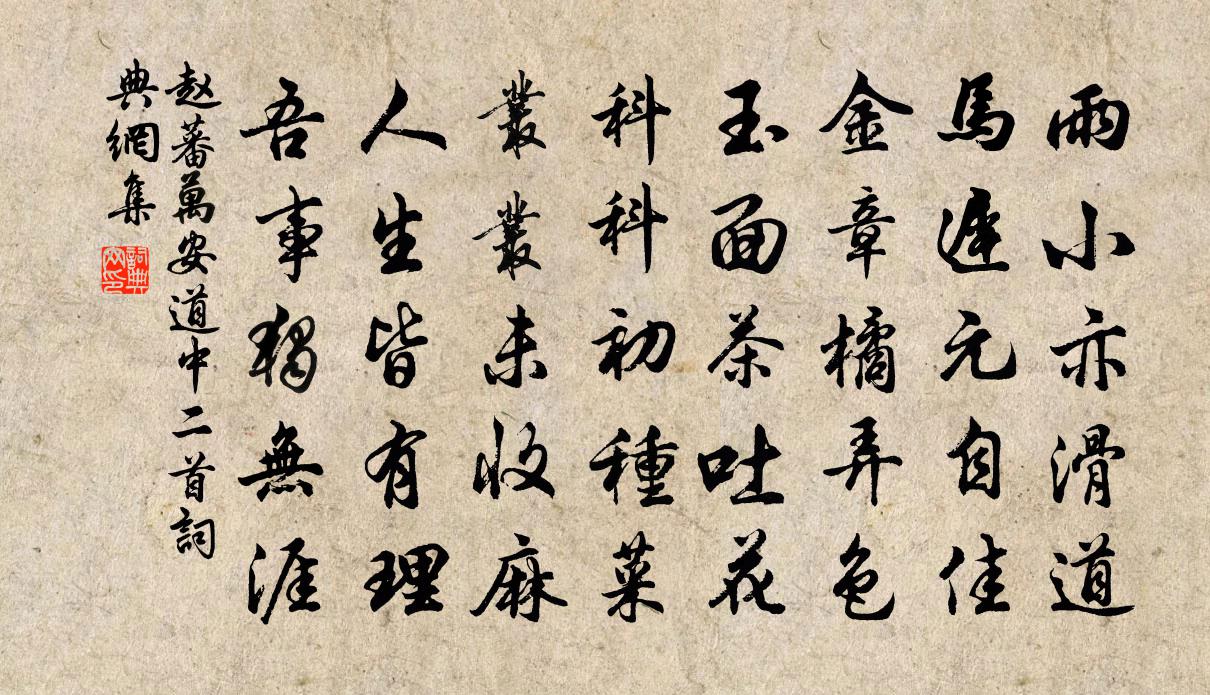 雨小亦滑道
馬遲元自佳
金章橘弄色
玉面茶吐花
科科初種菜
叢叢未收麻
人生皆有理
吾事獨無涯
赵蕃萬安道中二首詞
典網集
詞典
网印